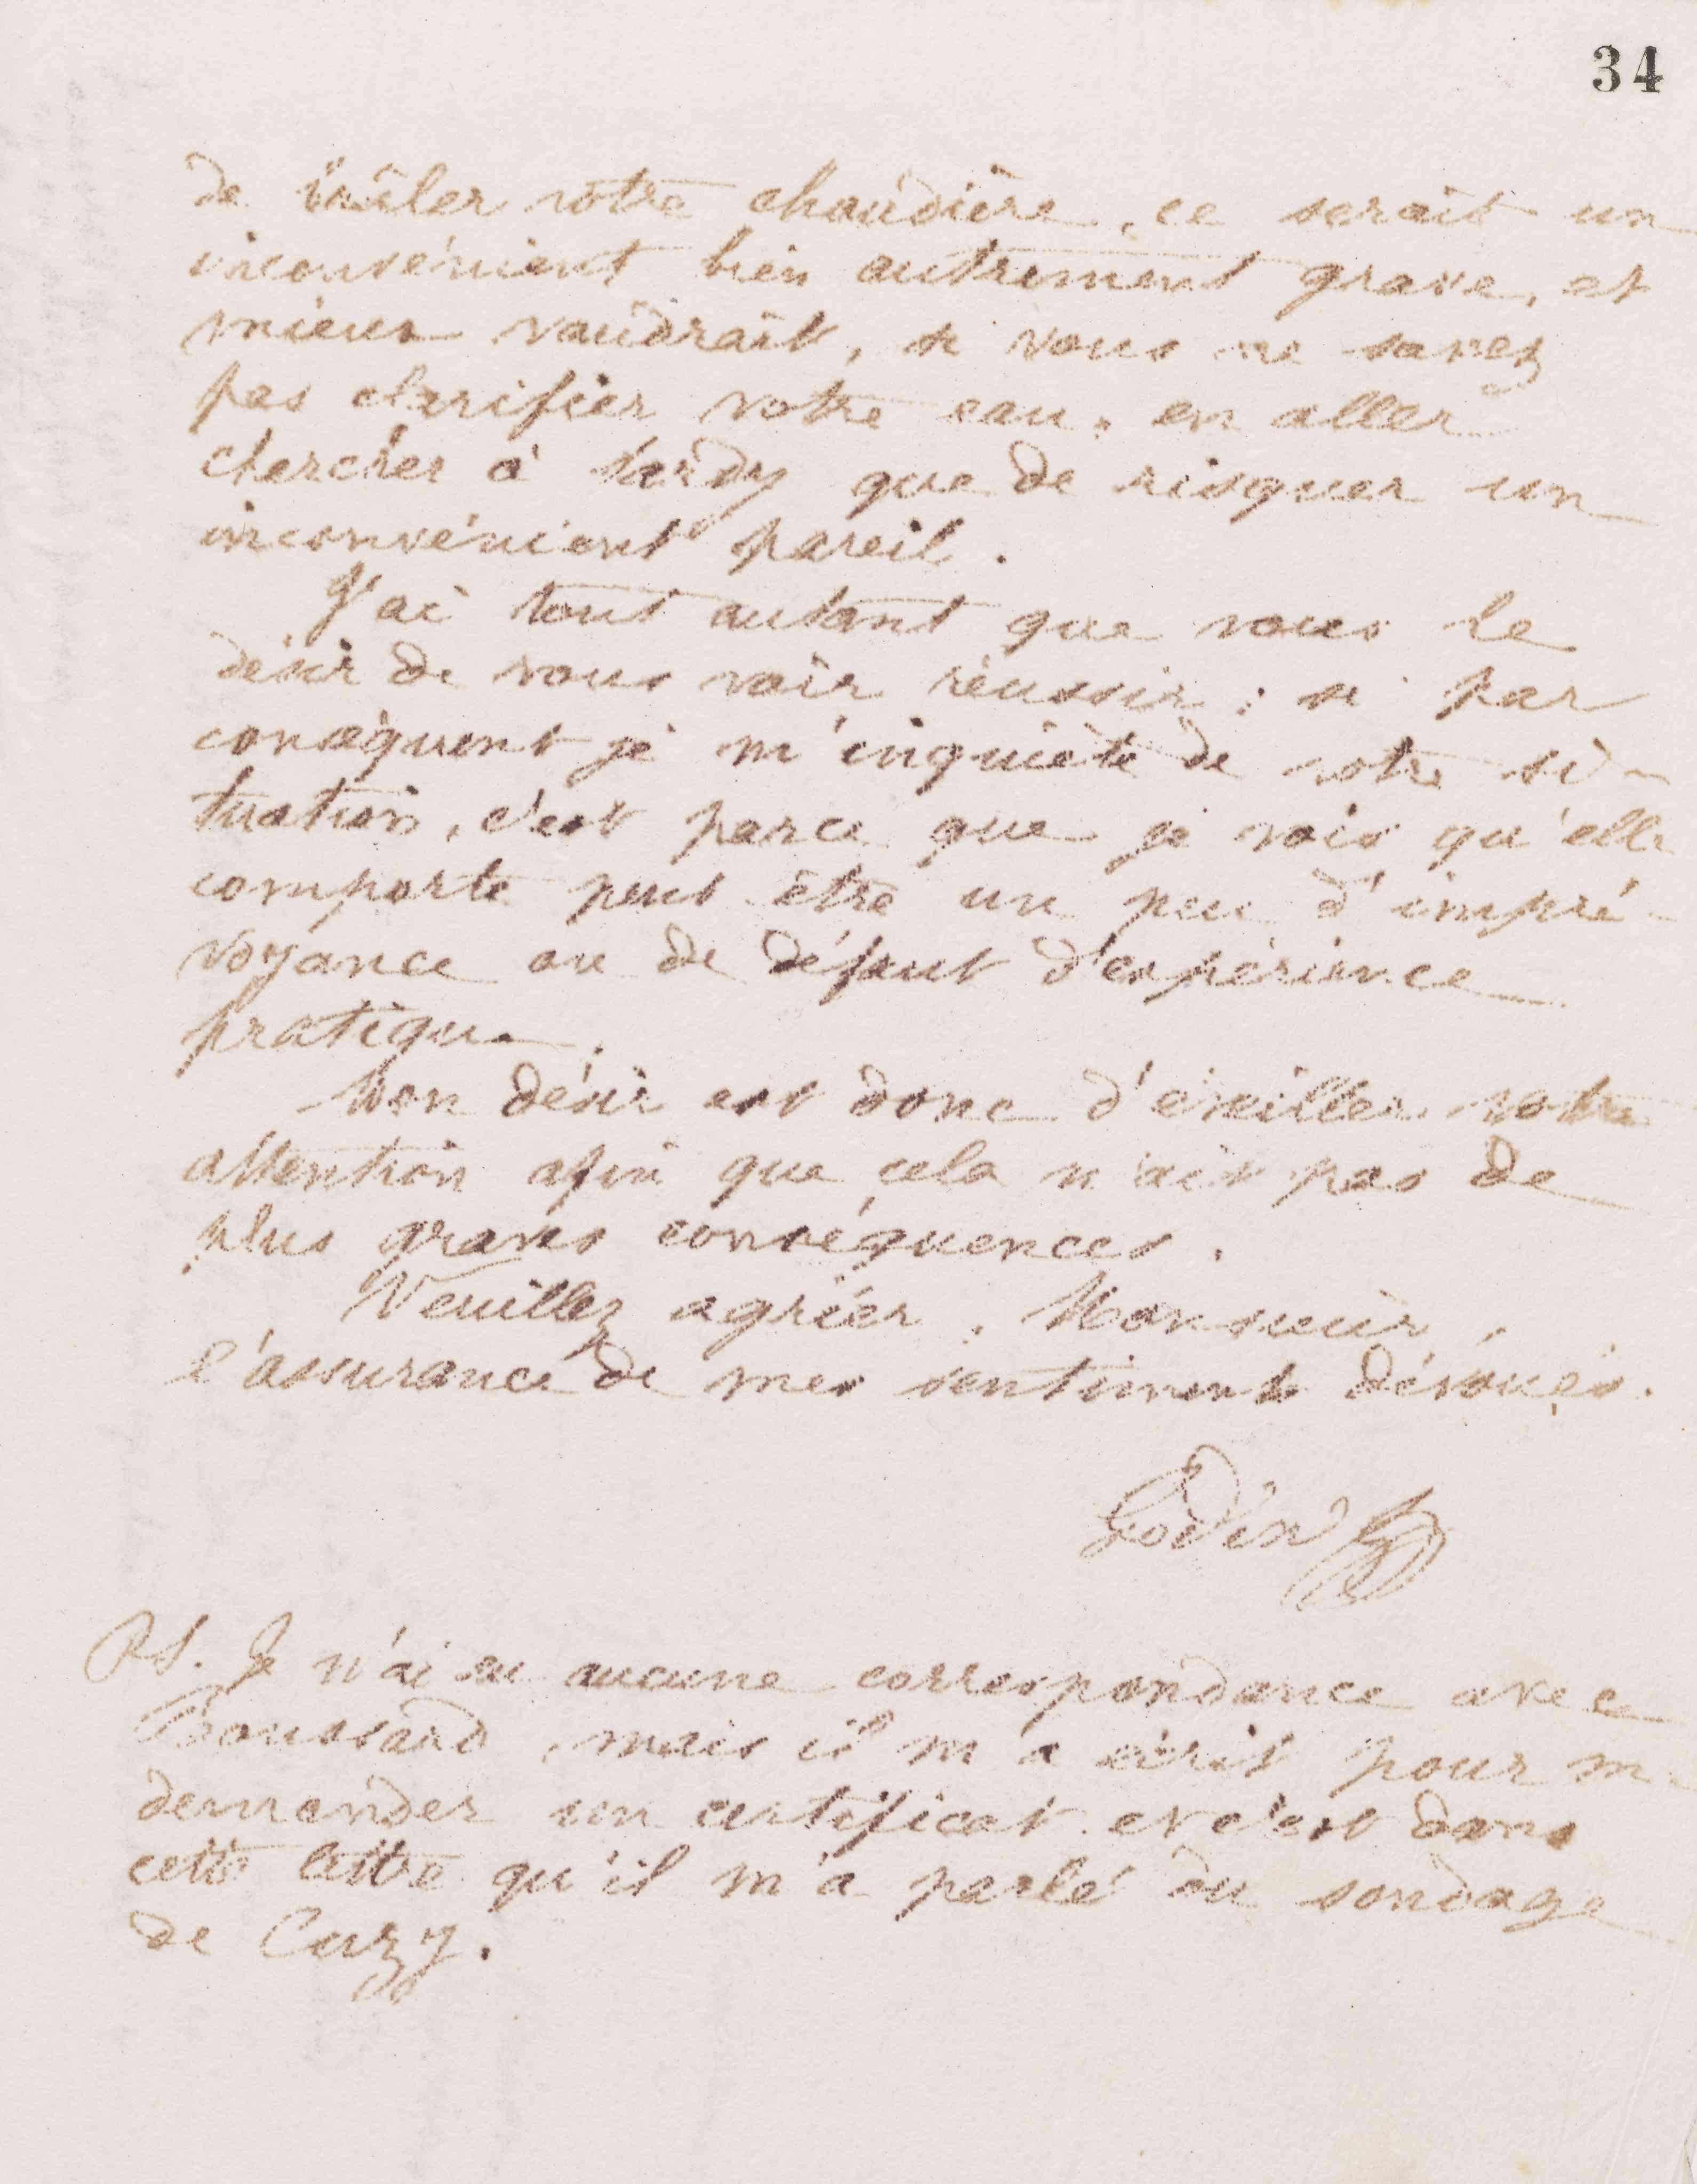 34
de brûler votre chaudière, ce serait un
inconvénient bien autrement grave, et
mieux vaudrait, si vous ne savez
pas clarifier votre eau, en aller
chercher à que de risquer un
inconvénient pareil.
J'ai tout autant que vous le
désir de vous voir réussir ; si par
conséquent je m'inquiète de votre si-
tuation, c'est parce que je vois qu'elle
comporte peut être un peu d'impré-
voyance ou de défaut d'expérience
pratique.
Mon désir est donc d'éveiller votre
attention afin que cela n'ait pas de
plus graves conséquences.
Veuillez agréer, Monsieur,
l'assurance de mes sentiments dévoués.
Godin
PS. Je n'ai eu aucune correspondance avec
mais il m'a écrit pour me
demander un certificat et c'est dans
cette lettre qu'il m'a parlé du sondage
de Cuzy.